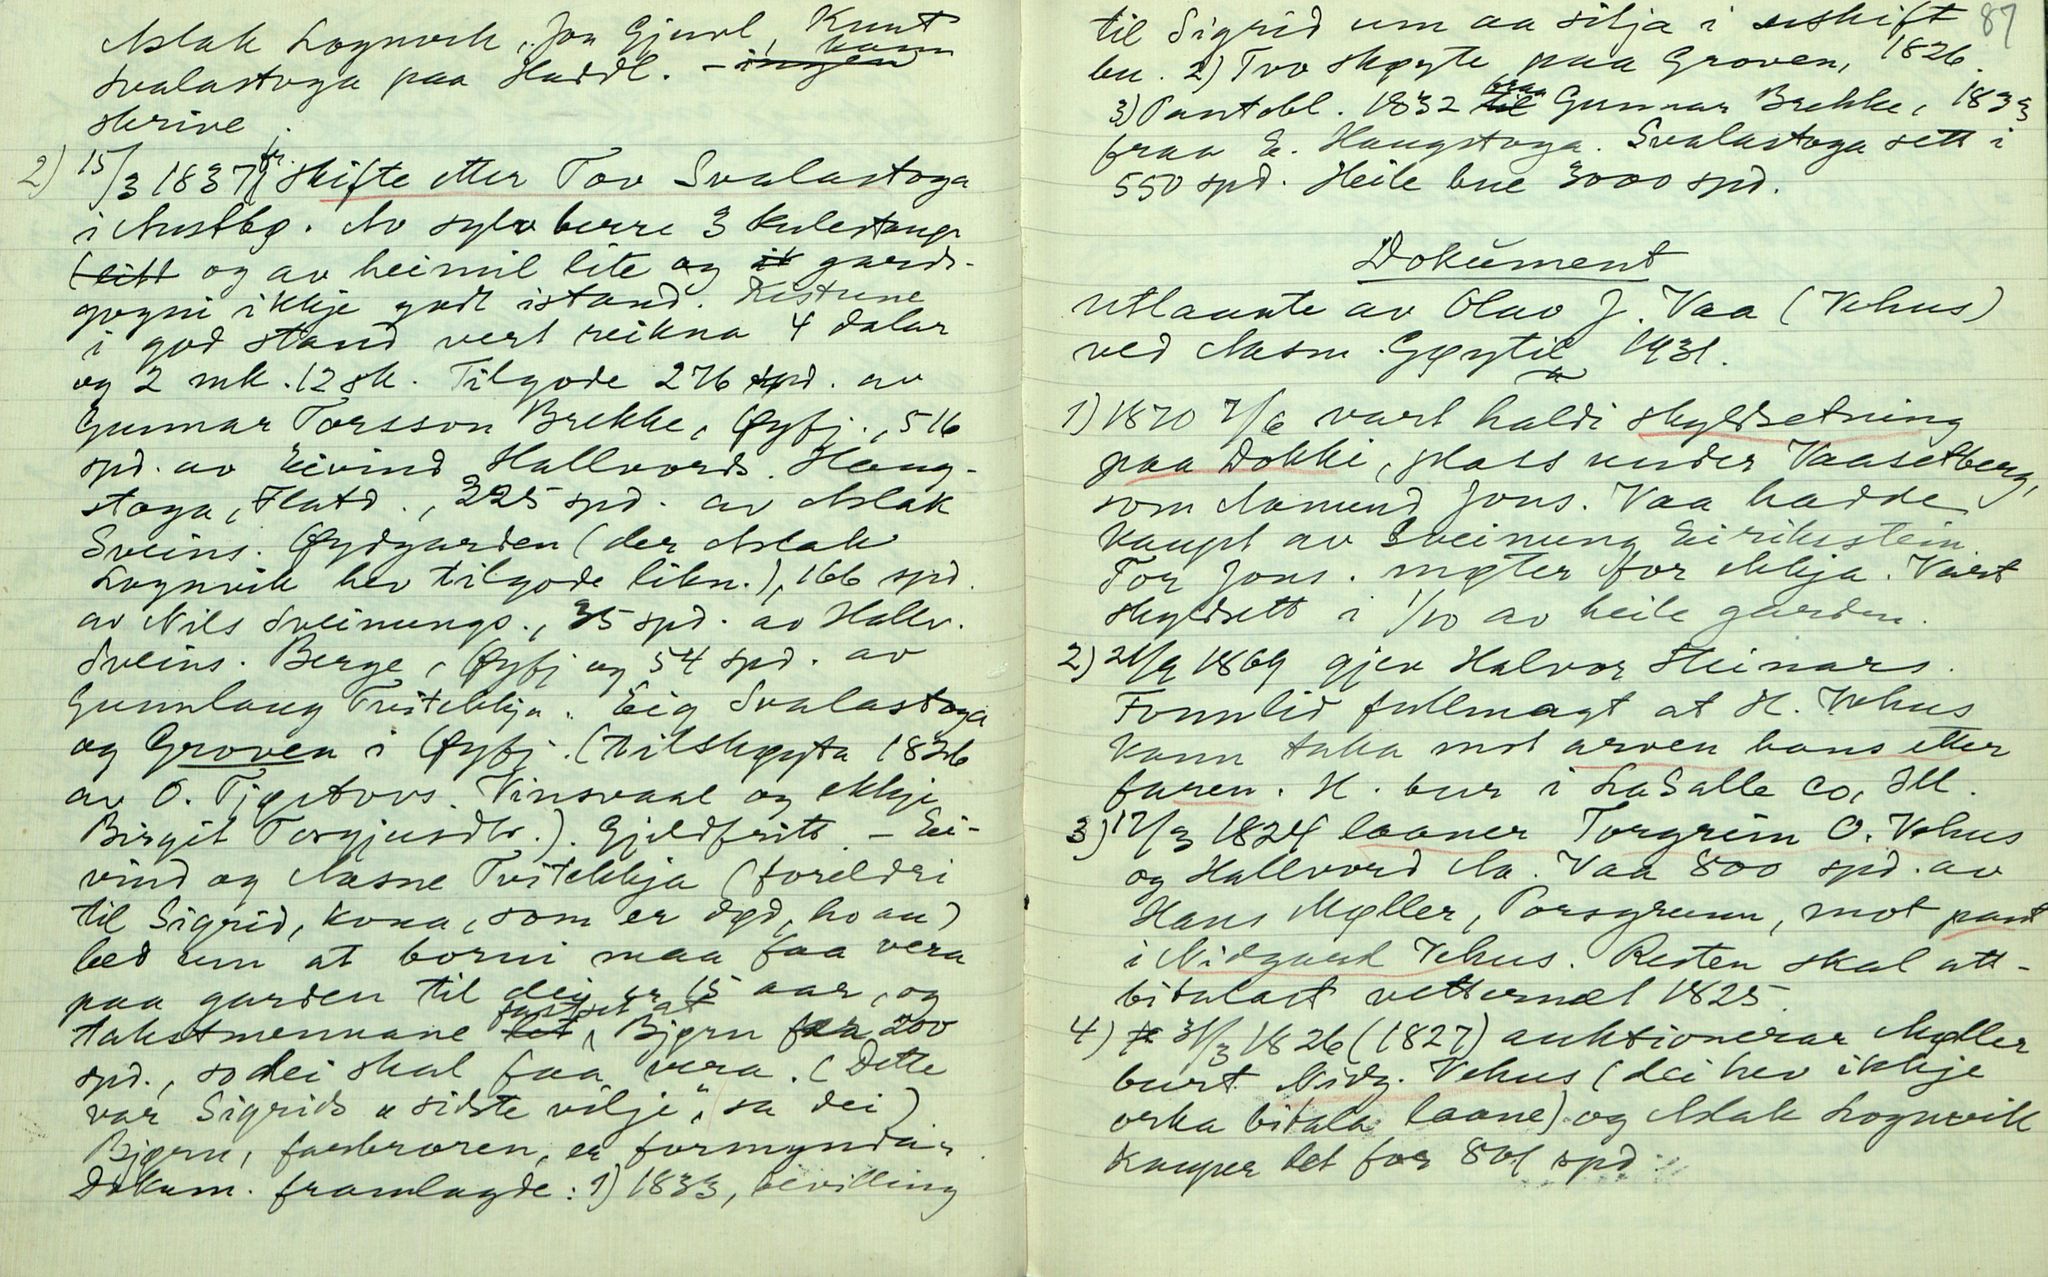 Aslak Lognvik, Jon Gjuvl, Knut
Svalastoga paa Haddl. – ingen kann
skrive.
2) 15/3 1837 fr. skifte etter Tov Svalastoga
i Austbø. Av sylv berre 3 kulestaup
(litt og av heimil lite og it gards-
gogni ikkje godt istand. Kistune
i god stand vert reikna 4 dalar
og 2 mk. 12 sk. Tilgode 276 spd. av
Gunnar Torsson Brekke, Øyfj., 516
spd. av Eivind Hallvords. Haug-
stoga, Flatd., 225 spd. av Aslak
Sveins. Øydgarden (der Aslak
Lognvik hev tilgode likn.), 166 spd.
av Nils Sveinungs., 35 spd. av Hallv.
Sveins. Berge, Øyfj og 54 spd. av
Gunnlaug Tvitekkja. Eig Svalastoga
og Groven i Øyfj. (Tilskøyta 1826
av O. Tjøstovs. Vinsvaal og ekkje
Birgit Torgjusdtr.). Gjeldfritt – Ei-
vind og Aasne Tvitekkja (foreldri
til Sigrid, kona, som er død, ho au)
bed um at borni maa faa vera
paa garden til dei er 15 aar, og
takstmennane let fastset at Bjørn faa 200
spd., so dei skal faa vera. (Dette
var Sigrids "sidste vilje", sa dei)
Bjørn, farbroren, er formyndar.
Dokum. framlagde: 1) 1833, bevilling
87
til Sigrid um aa silja i uskift
bu. 2) Tvo skøyte paa Groven, 1826.
3) Pantobl. 1832 til fraa Gunnar Brekke, 1833
fraa E. Haugstoga. Svalastoga sett i
550 spd. Heile bue 3000 spd.
Dokument
utlaante av Olav J. Vaa (Vehus)
ved Aasm. Gøytil 1931.
1) 1870 7/6 vart haldi skyldsetning
paa Dokki, plass under Vaasetberg,
som Aamund Jons. Vaa hadde
kaupt av Sveinung Eiriksstein.
Tor Jons. møter for ekkja. Vart
skyldsett i 1/10 av heile garden.
2) 21/9 1869 gjev Halvor Steinars.
Fonnlid fullmagt at H. Vehus
kann taka mot arven hans etter
faren. H. bur i LaSalle Co, Ill.
3) 17/3 1824 laaner Torgrim O. Vehus
og Hallvord Aa. Vaa 800 spd. av
Hans Møller, Porsgrunn, mot pant
i Nidgard Vehus. Resten skal att-
bitalast vetternæt 1825
4) 31/3 1826 (1827) auktionerar Møller
burt Nidg. Vehus (dei hev ikkje
orka bitala laane) og Aslak Lognvik
kauper det for 801 spd.